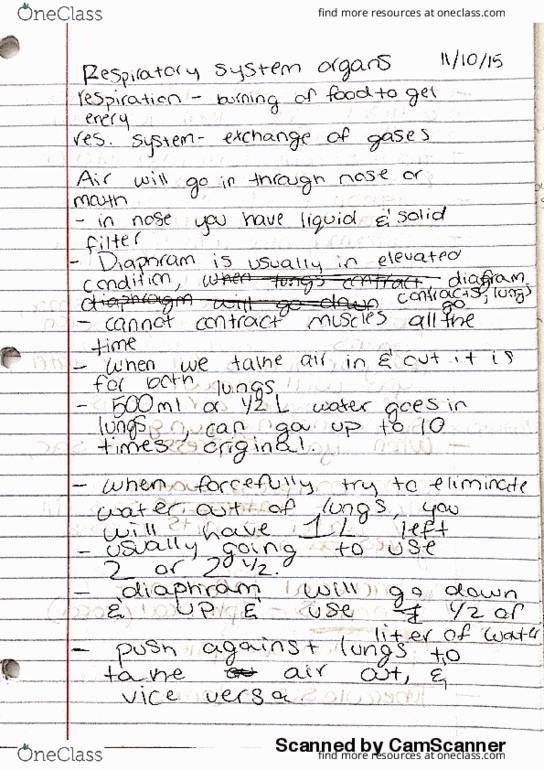 OneClass
find more resources at oneclass.com
Respiratory system organs 11/10/15
respiration - burning of food to get
enery
res. system- exchange of gases
Air will go in through nose or
mouth
- in nose you have liquid & solid
filter
- Diaphram is usually in elevated
condition, when lungs contract, diagram,
diaphragm will go down contracts, lungs
go
- cannot contract muscles all the
time
- when we take air in & out it is
for both lungs
- 500ml or 1/2 L water goes in
lungs, can go up to 10
times original.
- when forcefully try to eliminate
water out of lungs, you
will have 1L left
- usually going to use
2 or 2 1/2.
- diaphram will go down
& up & use 1/2 of
liter of water
- push against lungs to
take air out, &
vice versa.
Scanned by CamScanner
OneClass
find more resources at oneclass.com